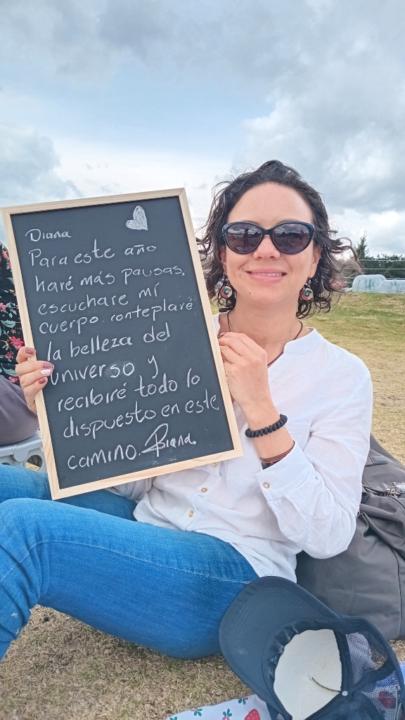 Diana
Para este año
haré más pausas.
escucharé mi
cuerpo conteplaré
la belleza del
universo y
recibiré todo lo
dispuesto en este
camino. Diana.